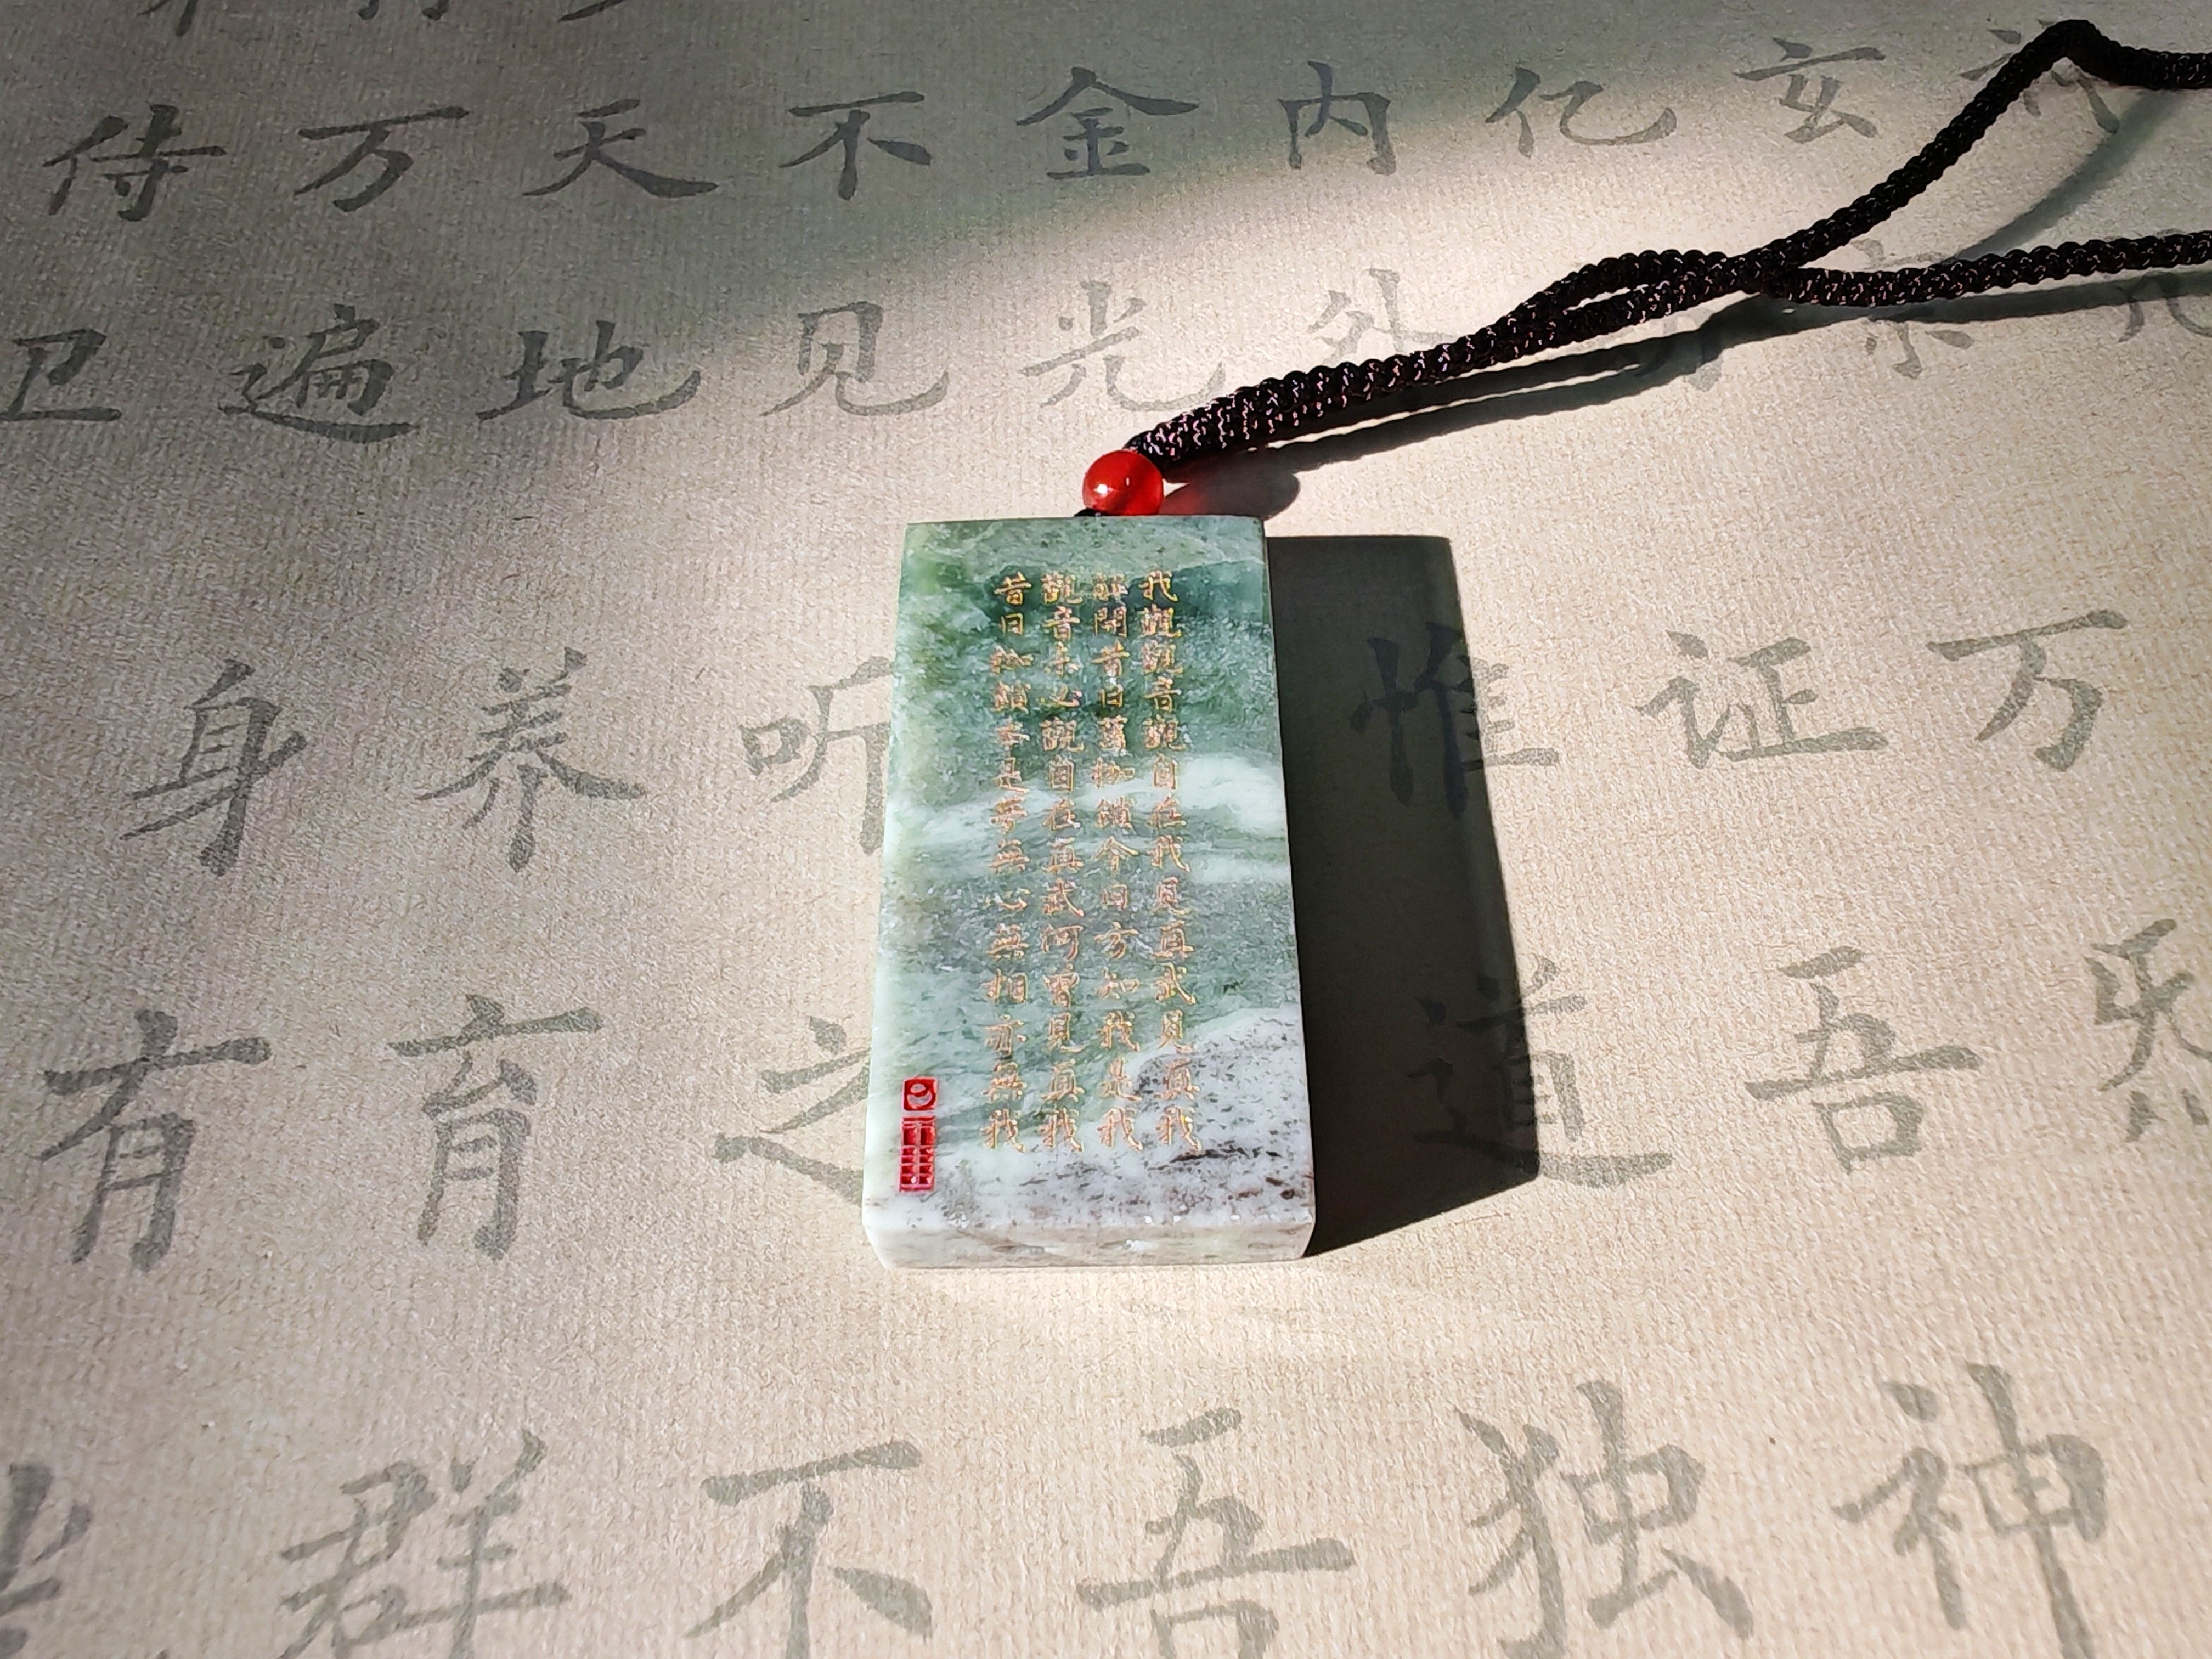 玄宗万炁
亿证吾神
内外惟道独
金光吾
不见听之不
天地养育群
万遍身有
侍卫
我觀觀音觀自在我見真武見真我
解開昔日舊枷鎖今日方知我是我
觀音本心觀自在真武何曾見真我
昔日枷鎖本是夢無心無相亦無我